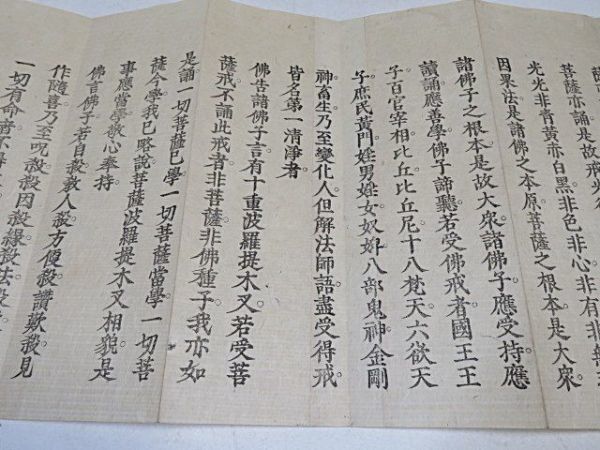 菩薩亦誦是故戒光從
光光非青黄赤白黑非色非心非有非無
因果法是諸佛之本原菩薩之根本是大衆
諸佛子之根本是故大衆諸佛子應受持應
讀誦應善學佛子諦聽若受佛戒者國王王
子百官宰相比丘比丘尼十八梵天六欲天
子庶民黄門婬男婬女奴婢八部鬼神金剛
神畜生乃至變化人但解法師語盡受得戒
皆名第一清淨者
佛告諸佛子言有十重波羅提木叉若受菩
薩戒不誦此戒者非菩薩非佛種子我亦如
是誦一切菩薩已學一切菩薩當學一切菩
薩今學我已略說菩薩波羅提木叉相貌是
事應當學敬心奉持
佛言佛子若自殺教人殺方便殺讚歎殺見
作隨喜乃至呪殺殺因殺緣殺法殺
一切有命者不得